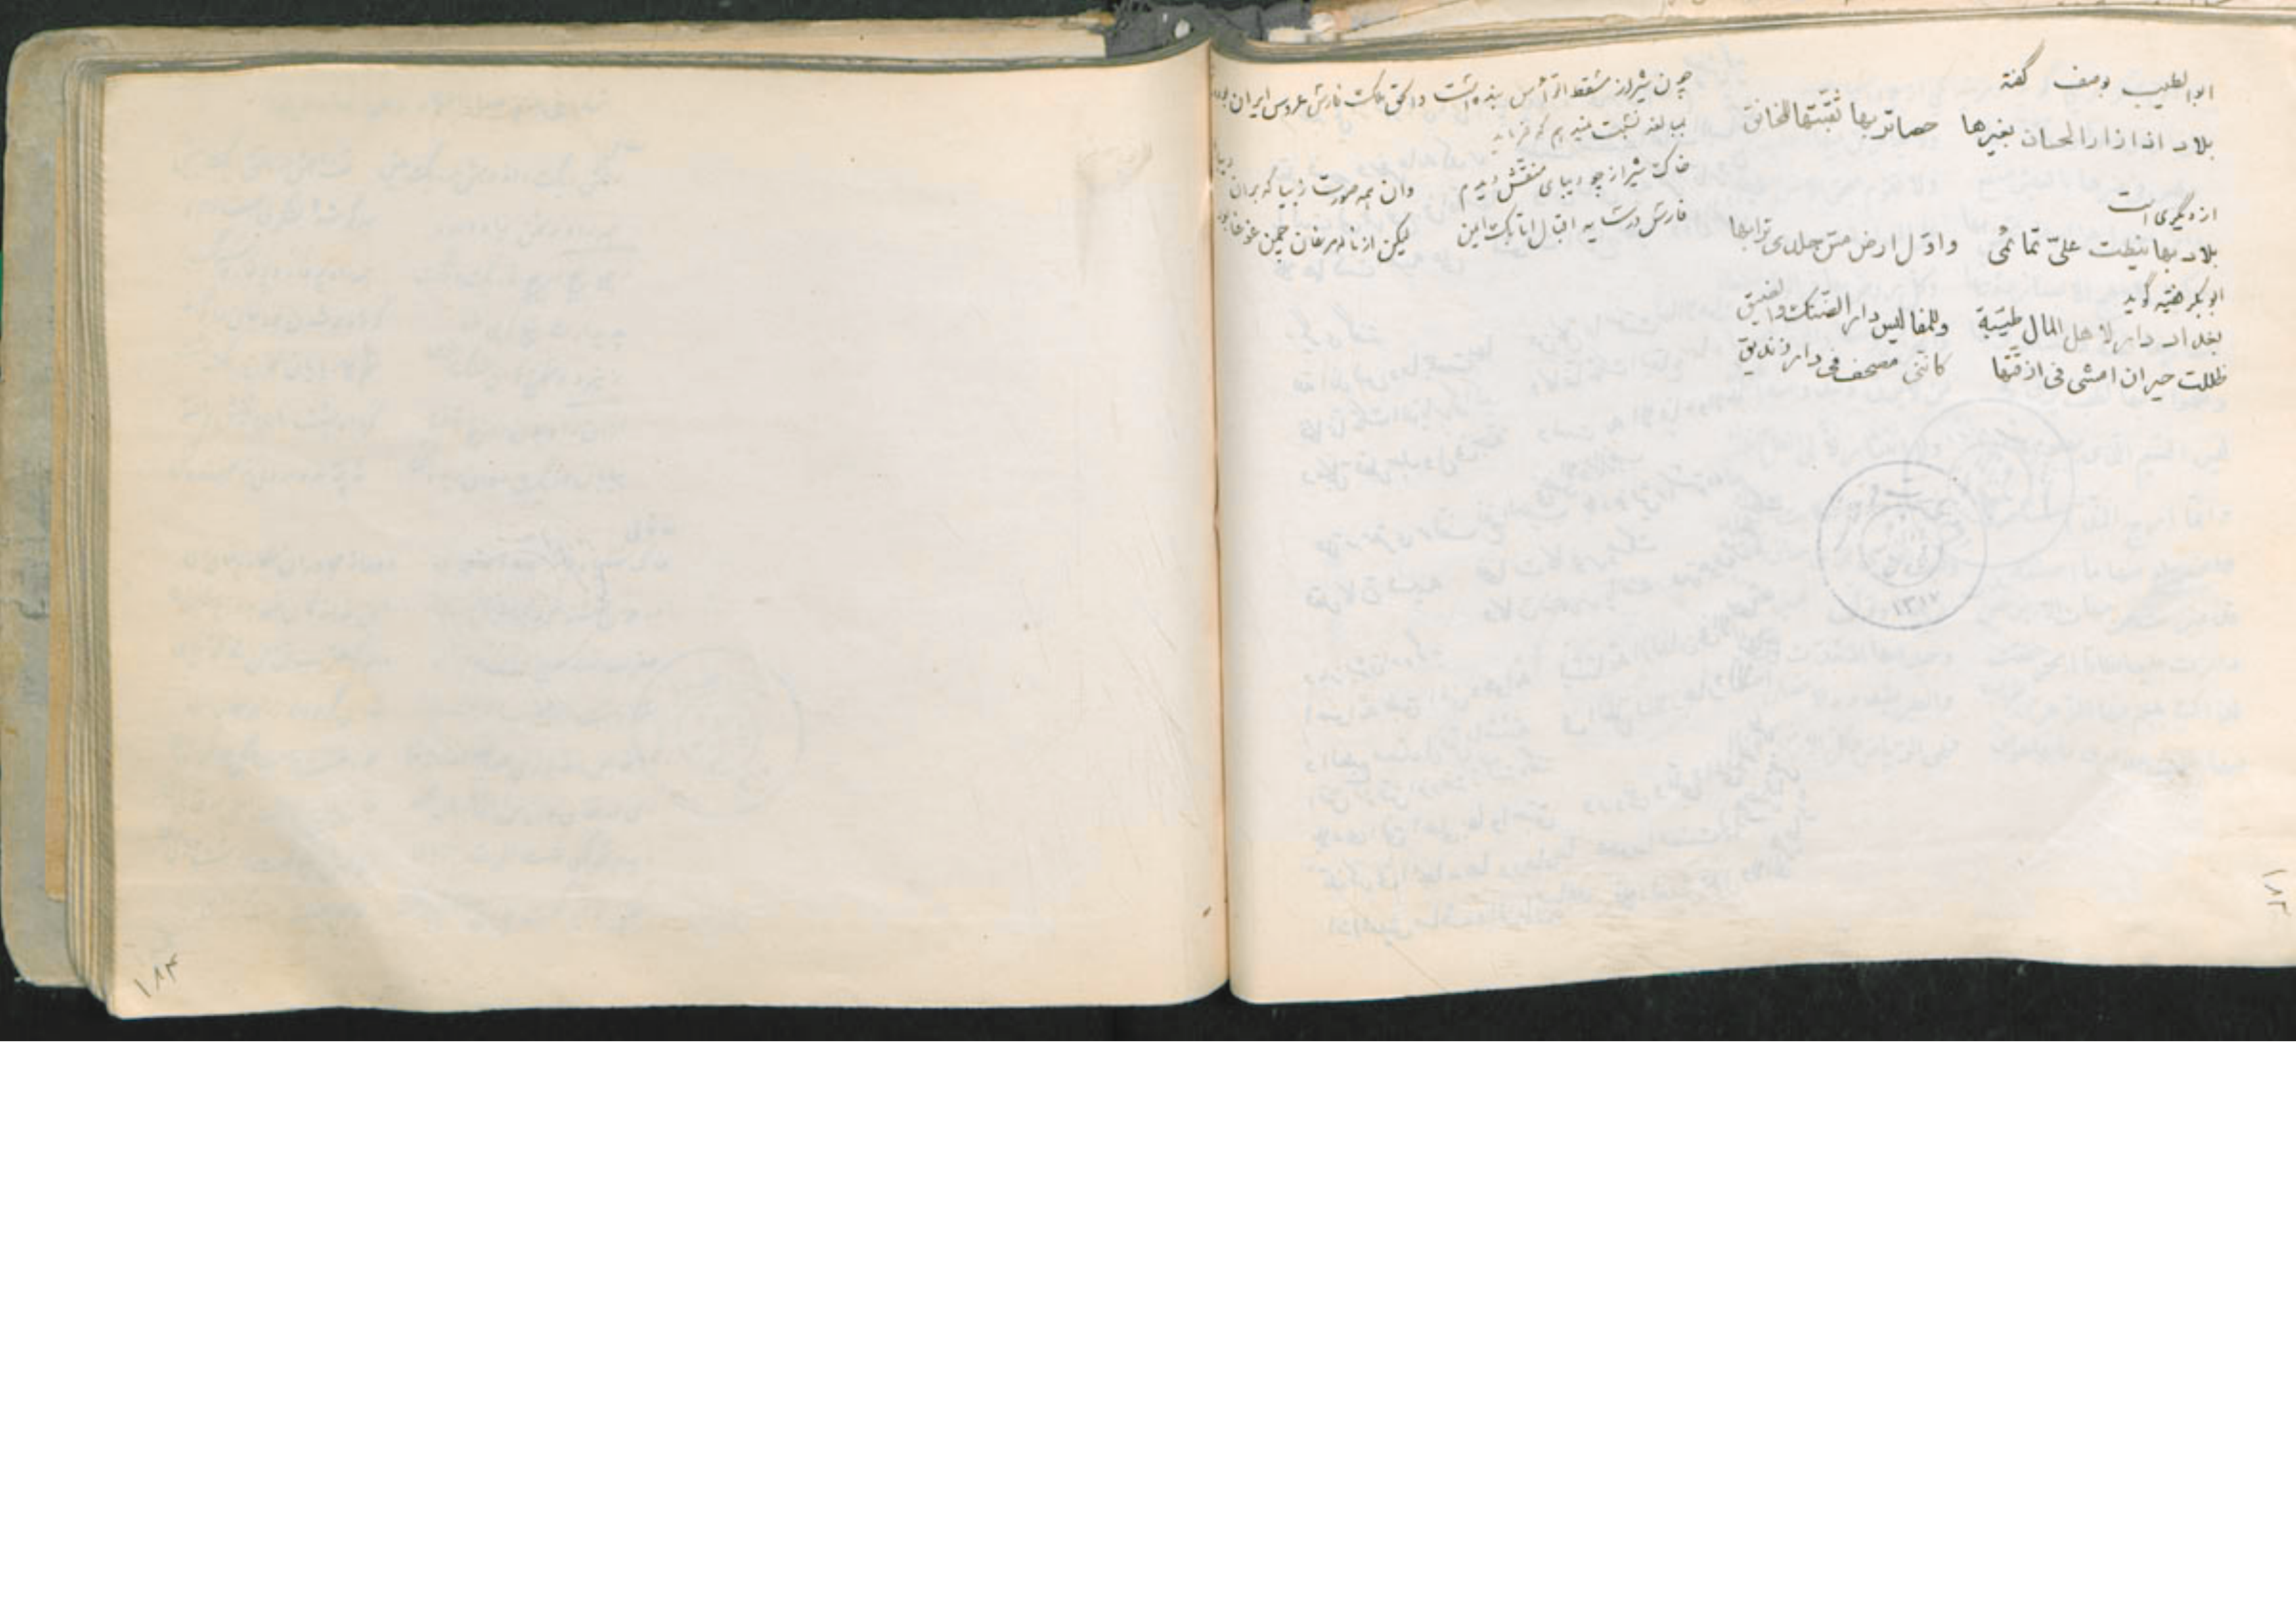 ابوالطیب بوصف گفته
بلاد اذا زار الحسان بغیرها حصاتربها ثقبتها للمخانق
از دیگری است
بلاد بها نیطت علیّ تمائمی و اوّل ارض مسّ جلدی ترابها
ابوبکر گوید
بغداد دار لاهل المال طیّبة وللمفالیس دار الضنک والضیق
ظللت حیران امشی فی ازقتها کانّنی مصحف فی دار زندیق
چون شیراز مسقط الرأس بنده است و الحق مملکت فارس عروس ایران بوده
مبالغه نسبت میدهم که فرماید
خاک شیراز چو دیبای منقش دیدم وان همه صورت زیبا که بران دیبا
فارس در سایه اقبال اتابک ایمن لیکن از ناله مرغان چمن غوغا بود
۱۳۱۷
۱۸۳
۱۸۴